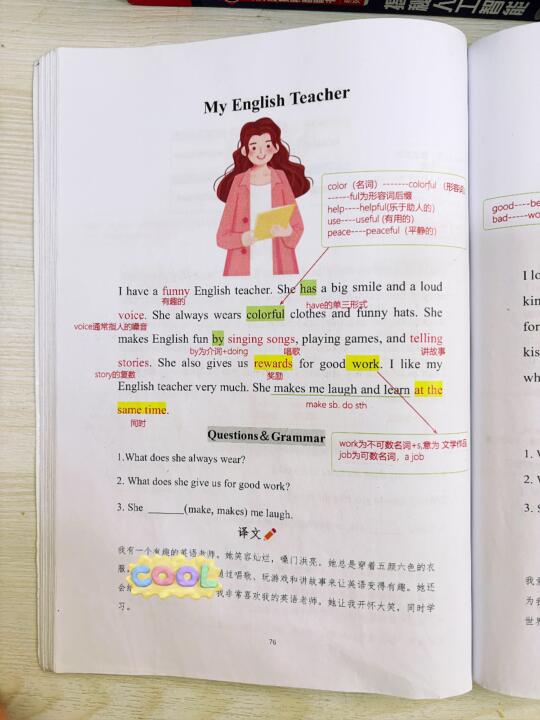 My English Teacher
color（名词）-------colorful（形容词
------ful为形容词后缀
help----helpful(乐于助人的)
use----useful (有用的)
peace----peaceful（平静的）
good----be
bad-----wo
I have a funny English teacher. She has a big smile and a loud
有趣的
have的单三形式
voice. She always wears colorful clothes and funny hats. She
voice通常指人的嗓音
makes English fun by singing songs, playing games, and telling
by为介词+doing
唱歌
讲故事
stories. She also gives us rewards for good work. I like my
story的复数
奖励
English teacher very much. She makes me laugh and learn at the
make sb. do sth
same time.
同时
work为不可数名词+s,意为 文学作品
job为可数名词，a job
Questions＆Grammar
1.What does she always wear?
2. What does she give us for good work?
3. She _______(make, makes) me laugh.
译文
我有一个有趣的英语老师。她笑容灿烂，嗓门洪亮。她总是穿着五颜六色的衣
服。
通过唱歌、玩游戏和讲故事来让英语变得有趣。她还
会
我非常喜欢我的英语老师。她让我开怀大笑，同时学
习。
COOL
76
I lo
kin
for
kis
wh
1. W
2. W
3. S
我
为我
世界